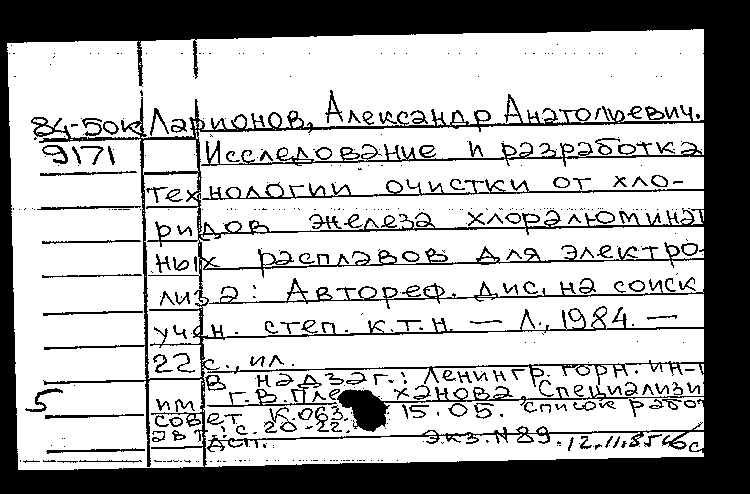 84-5ок Ларионов, Александр Анатольевич.
9171 Исследование и разработка
технологии очистки от хло-
ридов железа хлоралюминат
ных расплавов для электро-
лиза: Автореф. дис. на соиск.
учен. степ. к.т.н. — Л., 1984. —
22 с., ил.
В надзаг.: Ленингр. горн. ин-т
5 им. Г.В. Плеханова, Специализи
совет К.063. 15.05. Список работ
авт.: с. 20-22.
ДСП. Экз. N89. 12.11.85